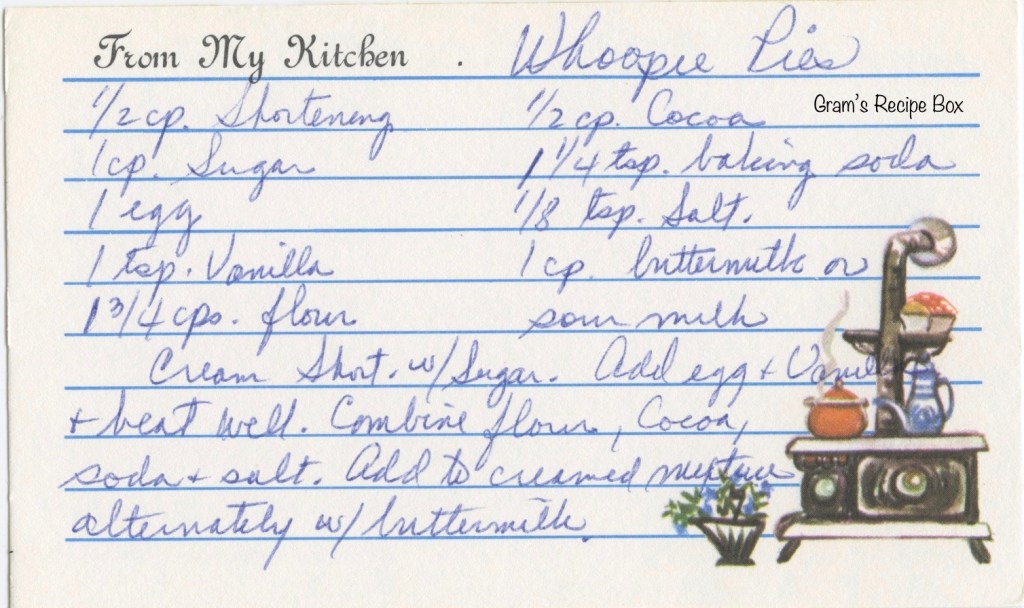 From My Kitchen . Whoopie Pies
Gram's Recipe Box
1/2 cp. Shortening 1/2 cp. Cocoa
1 cp. Sugar 1 1/4 tsp. baking soda
1 egg 1/8 tsp. Salt.
1 tsp. Vanilla 1 cp. buttermilk or
1 3/4 cps. flour sour milk
Cream Short. w/ Sugar. Add egg + Vanilla
+ beat well. Combine flour, Cocoa,
soda + salt. Add to creamed mixture
alternately w/ buttermilk.